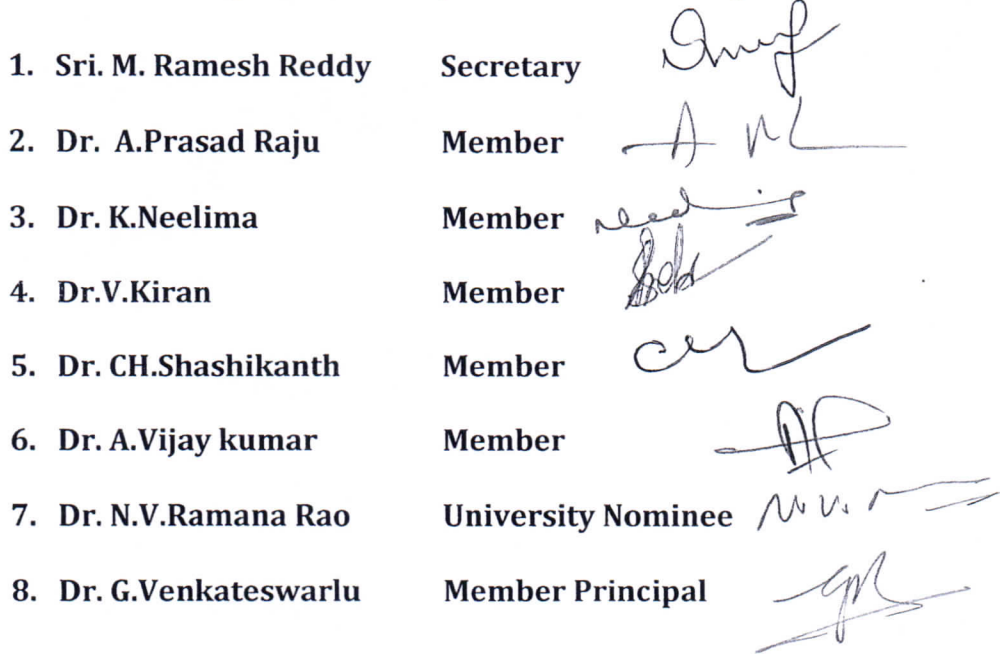 1. Sri. M. Ramesh Reddy Secretary
2. Dr. A.Prasad Raju Member
3. Dr. K.Neelima Member
4. Dr.V.Kiran Member
5. Dr. CH.Shashikanth Member
6. Dr. A.Vijay kumar Member
7. Dr. N.V.Ramana Rao University Nominee
8. Dr. G.Venkateswarlu Member Principal